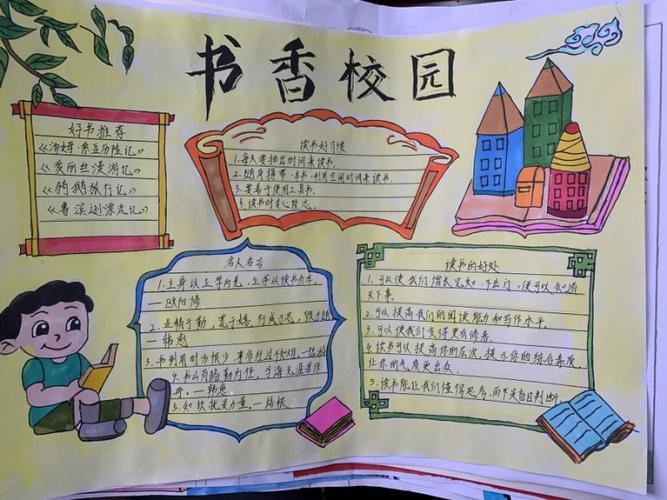 书香校园
好书推荐
《汤姆·索亚历险记》
《爱丽丝漫游记》
《骑鹅旅行记》
《鲁滨逊漂流记》
读书好习惯
1.每天要抽出时间来读书.
2.随身携带一本书.利用空闲时间来读书.
3.要善于使用工具书.
4.读书时专心致志.
名人名言
1.立身以立学为先,立学以读书为本.
—欧阳修
2.业精于勤,荒于嬉.行成于思,毁于随
—韩愈
3.书到用时方恨少,事非经过不知难.—陆游
4.书山有路勤为径,学海无涯苦作
舟.—韩愈
5.知识就是力量.—培根
读书的好处
1.可以使我们增长见识.不出门,便可以知道
天下事.
2.可以提高我们的阅读能力和写作水平.
3.可以使我们变得更有修养.
4.读书可以提高你的层次,提示你的综合素质,
让你的气质更出众.
5.读书能让我们懂得思考,而不是盲目判断.